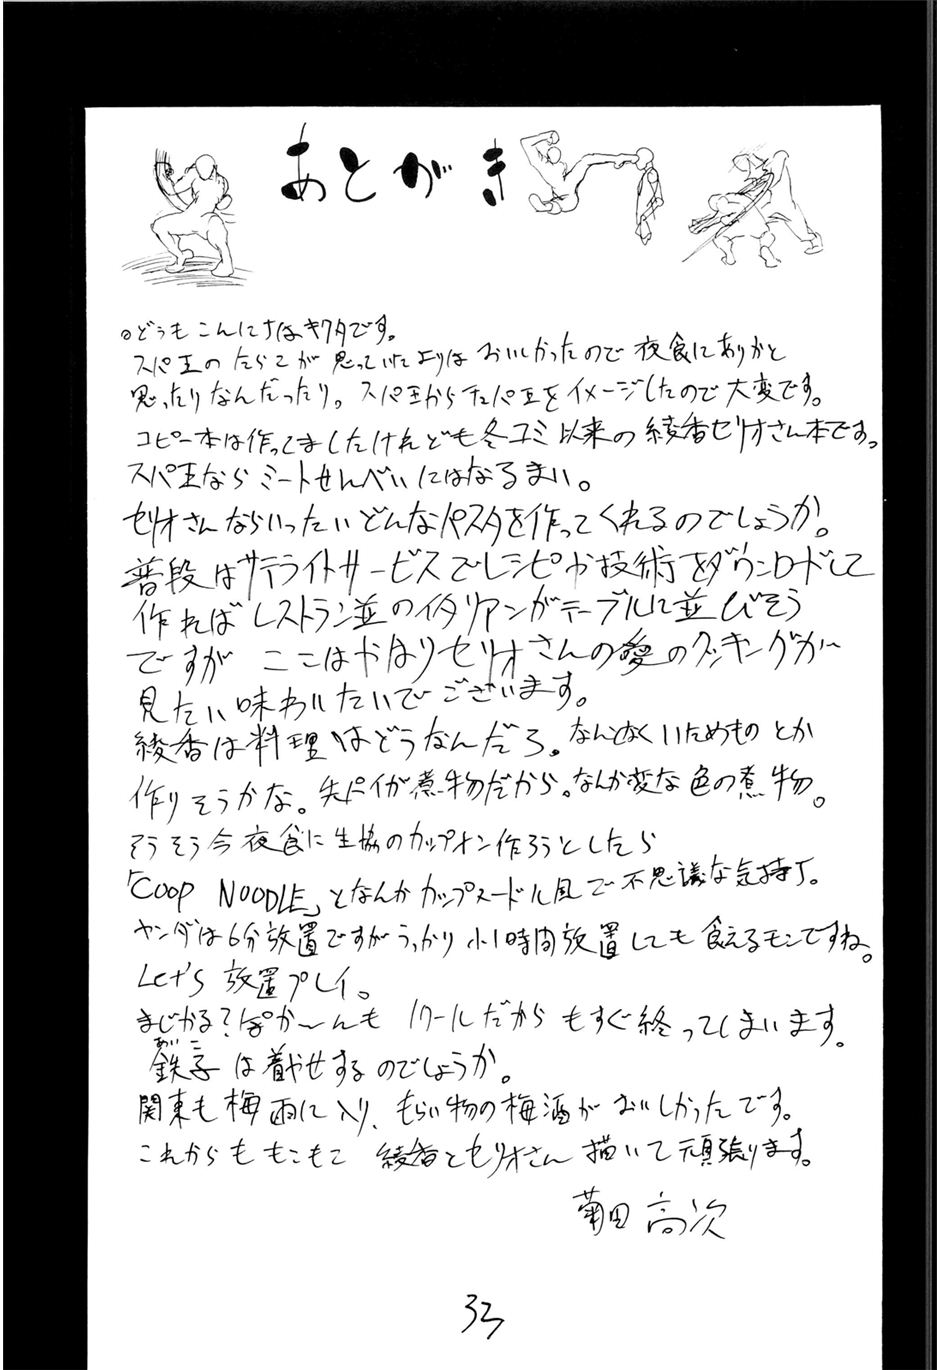 あとがき
○どうもこんにちはキクタです。
スパ王のたらこが思っていたよりはおいしかったので夜食にありかと
思ったりなんだったり。スパ王からチパ王をイメージしたので大変です。
コピー本は作ってましたけれども冬コミ以来の綾香セリオさん本です。
スパ王ならミートせんべいにはなるまい。
セリオさんならいったいどんなパスタを作ってくれるのでしょうか。
普段はサテライトサービスでレシピや技術をダウンロードして
作ればレストラン並のイタリアンがテーブルに並びそう
ですが ここはやはりセリオさんの愛のクッキングが
見たい味わいたいでございます。
綾香は料理はどうなんだろ。なんとなくいためものとか
作りそうかな。先パイが煮物だから。なんか変な色の煮物。
そうそう今夜食に生協のカップメン作ろうとしたら
「COOP NOODLE」となんかカップヌードル風で不思議な気持ち。
ヤンダは6分放置ですがうっかり小1時間放置しても食えるモンですね。
Let's 放置プレイ。
まじかる?ぽか〜んも 1クールだからもすぐ終ってしまいます。
鉄子は着やせするのでしょうか。
あいこ
関東も梅雨に入り、もらい物の梅酒がおいしかったです。
これからももこもこ 綾香とセリオさん描いて頑張ります。
菊田 高次
33